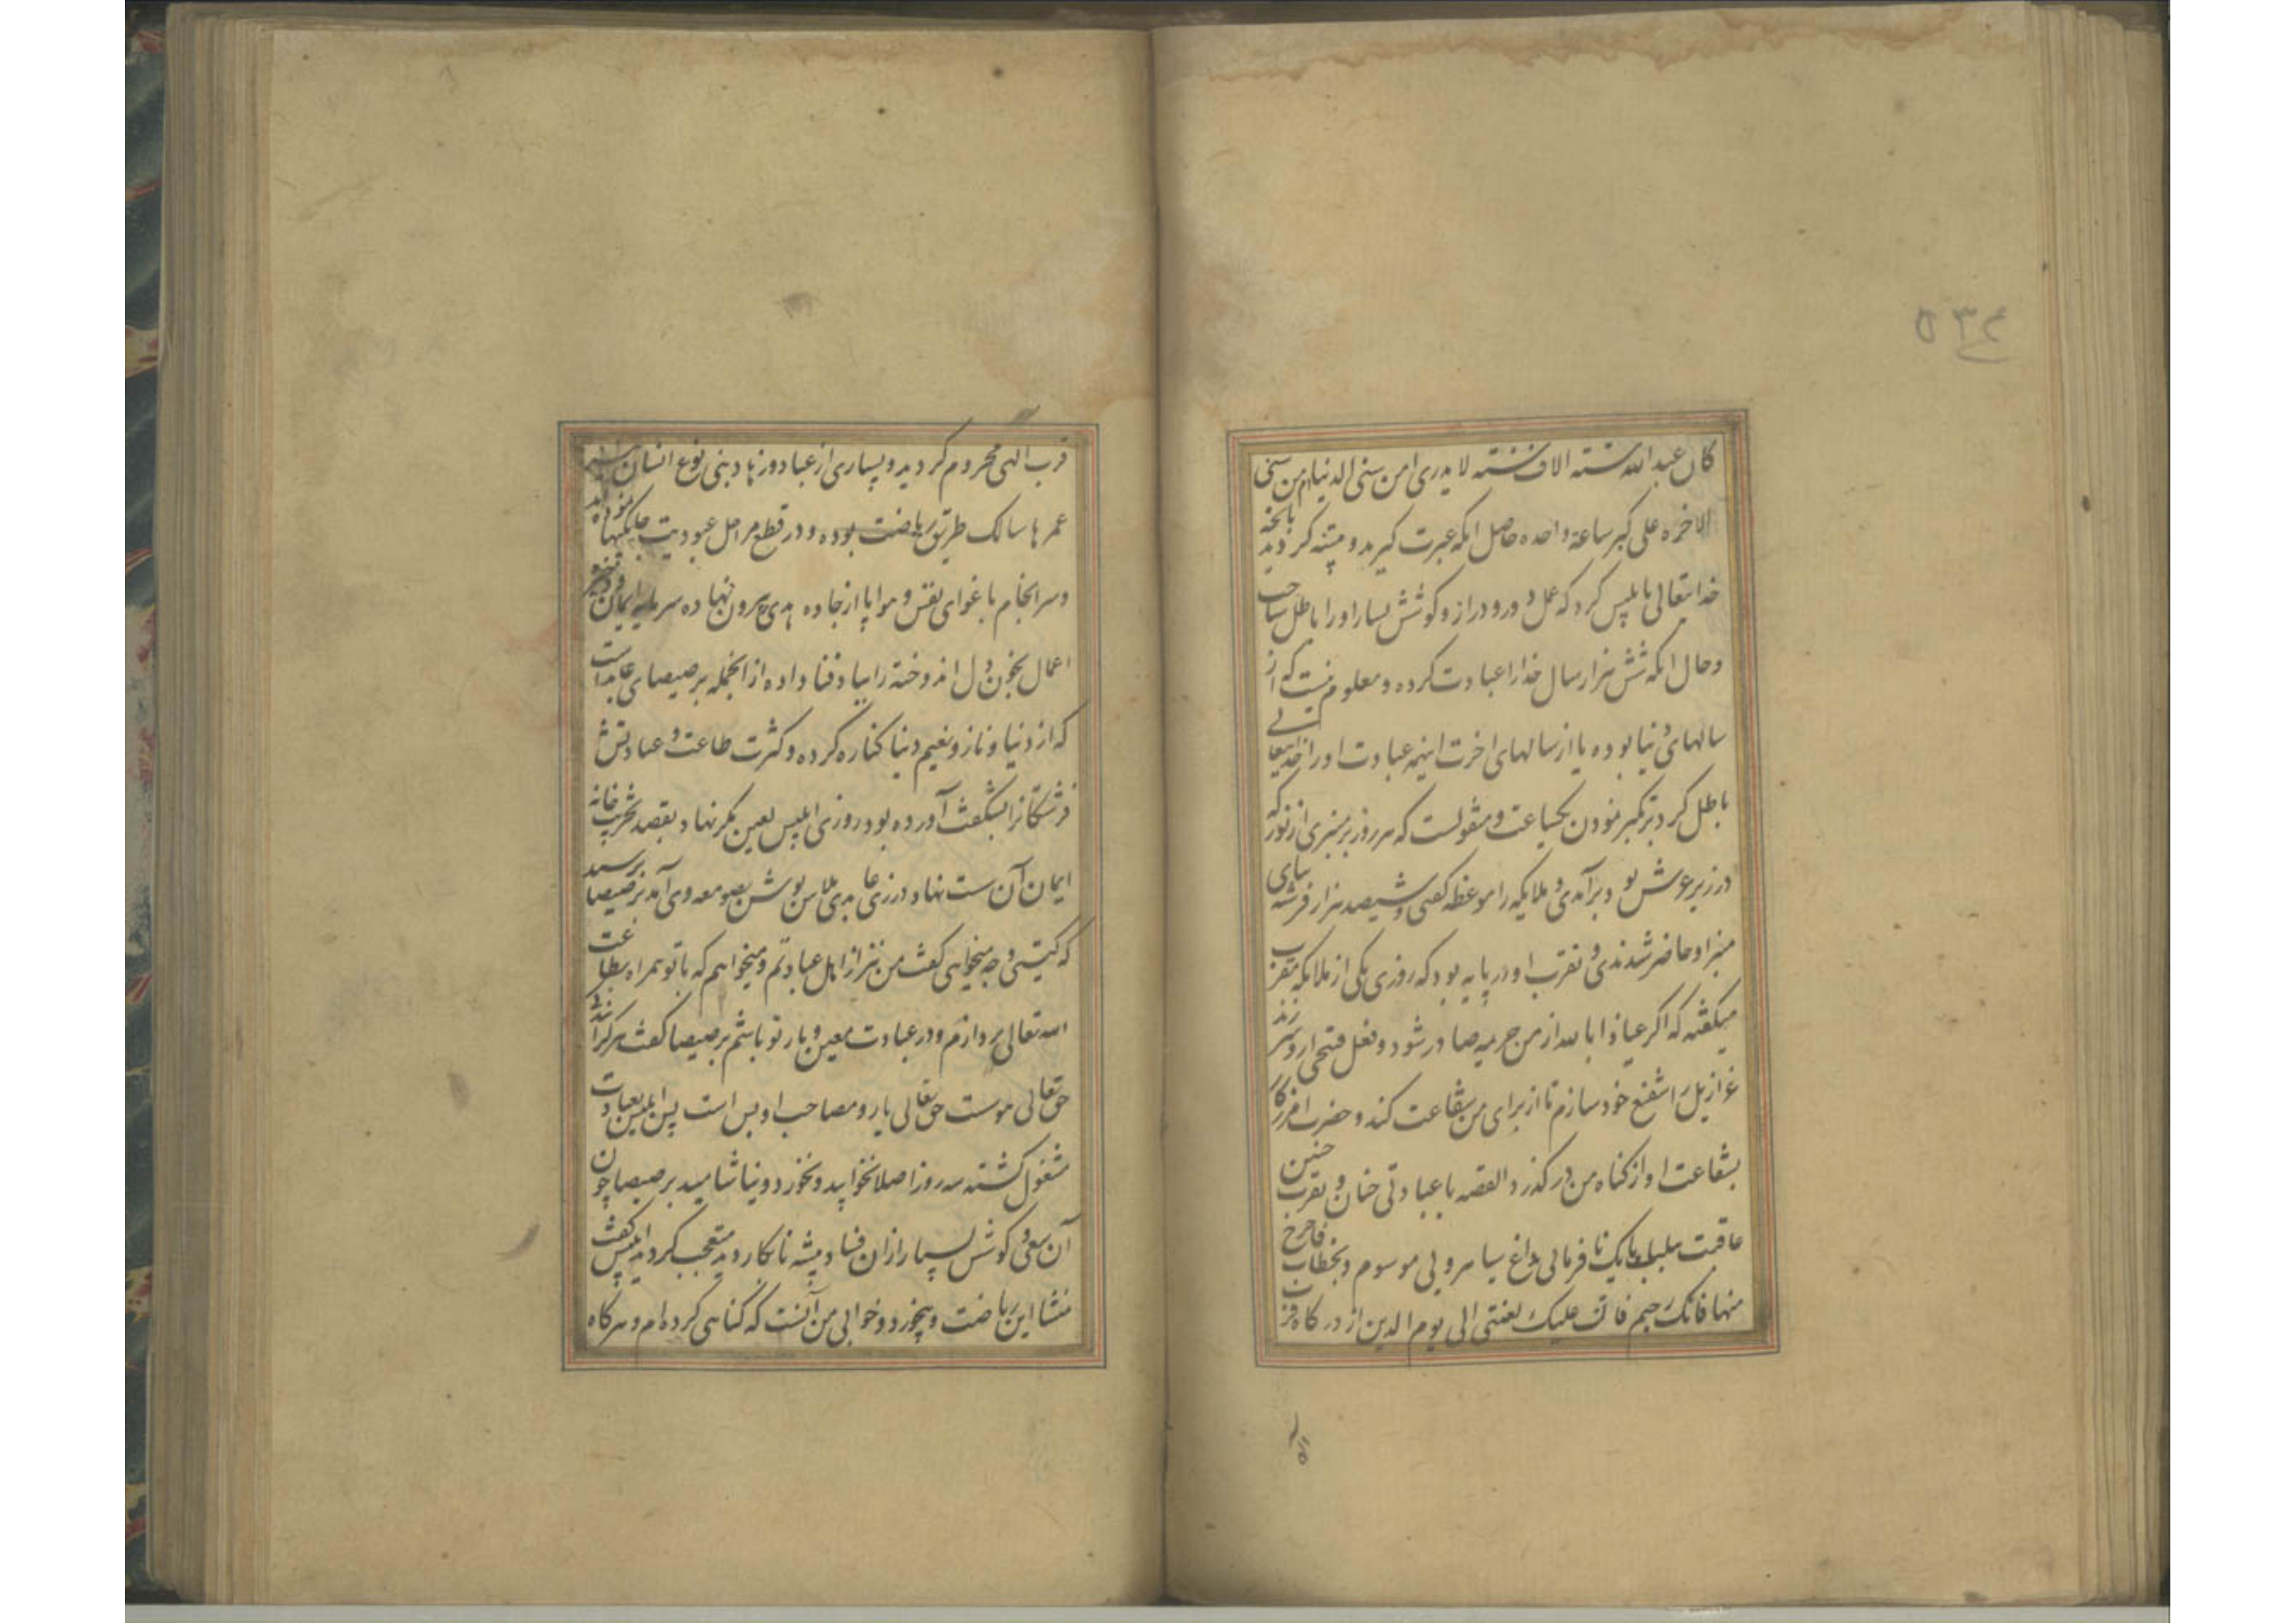 ۵۳۴
کان عبد الله ستة الاف سنة لا یدری امن سنی الدنیا ام من سنی
الاخره علی کبر ساعة واحده حاصل انکه عبرت کیرید و متنبه کردید بانچه
خدایتعالی بابلیس کرد که عمل دور و دراز و کوشش بسیار او را باطل ساخت
و حال انکه شش هزار سال خدا را عبادت کرده و معلوم نیست که از
سالهای دنیا بوده یا از سالهای اخرت اینهمه عبادت او را خدایتعالی
باطل کرد بتکبر نمودن یکساعت و منقولست که هر روز بر منبری از نور که
در زیر عرش بود برآمدی و ملایکه را موعظه کفتی و ششصد هزار فرشته بپای
منبر او حاضر شدندی و تقرب او در پایه بود که روزی یکی از ملایکه مقرب
میکفته که اکر عیاذا بالله از من جریمه صادر شود و فعل قبحی از و سر زند
عزازیل را شفیع خود سازم تا از برای من شفاعت کند و حضرت افریدکار
بشفاعت او از کناه من در کذرد القصه با عبادتی چنان و تقرب چنین
عاقبت بیک نافرمانی بداغ سیاه رویی موسوم و بخطاب فاخرج
منها فانک رجیم فان علیک لعنتی الی یوم الدین از درکاه قرب
قرب الهی محروم کردید و بسیاری از عباد و زهاد بنی نوع انسان
عمرها سالک طریق ریاضت بوده و در قطع مراحل عبودیت نموده
و سر انجام باغوای نفس و هوا پا از جاده هدی بیرون نهاده سرمایه ایمان و
اعمال بخون دل اندوخته را بباد فنا داده از انجمله برصیصای عابد است
که از دنیا و ناز و نعیم دنیا کناره کرده و کثرت طاعت و عبادتش
فرشتکانرا بشکفت آورده بود روزی ابلیس لعین بکر نهاد بقصد تخریب خانه
ایمان آن سست نهاد در زی عابدی پلاس پوش بصومعه وی آمد برصیصا پرسید
که کیستی و چه میخواهی کفت من نیز از اهل عبادتم و میخواهم که با تو همراه بطاعت
الله تعالی پردازم و در عبادت معین و یار تو باشم برصیصا کفت هر کرا
حق تعالی موست حق تعالی یار و مصاحب او بس است پس ابلیس بعبادت
مشغول کشته سه روز اصلا نخوابید و نخورد و نیاشامید برصیصا چون
آن سعی و کوشش بسیار از ان فساد پیشه نابکار دید متعجب کردید ابلیس کفت
منشا این ریاضت و بیخورد و خوابی من آنست که کناهی کرده ام و هرکاه